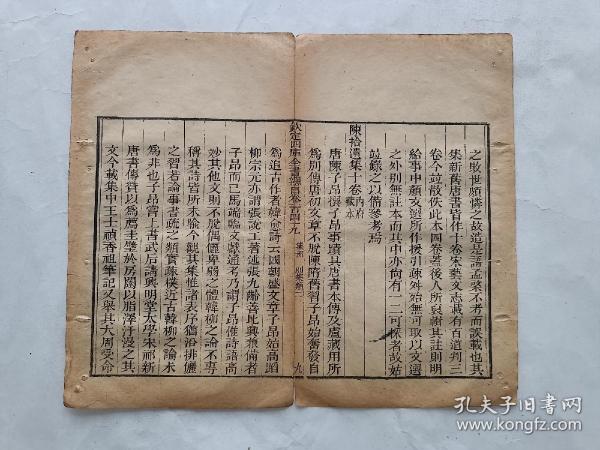 之敗世頗憐之故造是語孟棨不考而誤載也其
集新舊唐書皆作十卷宋藝文志載有百道判三
卷今竝散佚此本四卷蓋後人所裒輯其註則明
給事申顏文選所作援引疎舛始無可取以文選
之外別無註本而其中亦尙有一二可採者故姑
竝錄之以備參考焉
陳拾遺集十卷 內府藏本
唐陳子昂撰子昂事蹟具唐書本傳及盧藏用所
爲別傳唐初文章不脫陳隋舊習子昂始奮發自
欽定四庫全書總目卷一百四十九 集部 別集類二 九
爲追古作者韓愈詩云國朝盛文章子昂始高蹈
柳宗元亦謂張說工著述張九齡善比興兼備者
子昂而已馬端臨文獻通考乃謂子昂惟詩語高
妙其他文則不脫偶儷卑弱之體韓柳之論不專
稱其詩皆所未喻今觀其集惟諸表序猶沿排儷
之習若論事書疏之類實疎樸近古韓柳之論未
爲非也子昂嘗上書武后請興明堂太學宋祁新
唐書傳贊以爲薦圭璧於房闥以脂澤汙漫之其
文今載集中王士禎香祖筆記又舉其大周受命
孔夫子旧书网
book.kongfz.com